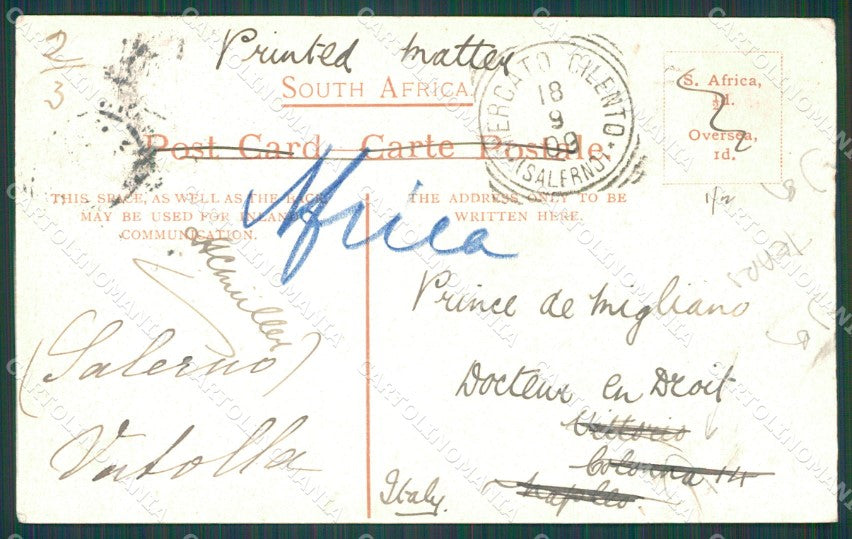 2/3
Printed matter
SOUTH AFRICA.
Post Card. Carte Postale.
MERCATO CILENTO
18
9
09
(SALERNO)
S. Africa,
½d.
Oversea,
1d.
1/2
THIS SPACE, AS WELL AS THE BACK,
MAY BE USED FOR INLAND
COMMUNICATION.
THE ADDRESS ONLY TO BE
WRITTEN HERE.
Africa
Prince de Migliano
Docteur en Droit
Vittorio
Colonna 14
Naples
Italy.
(Salerno)
Vatolla
CARTOLINOMANIA